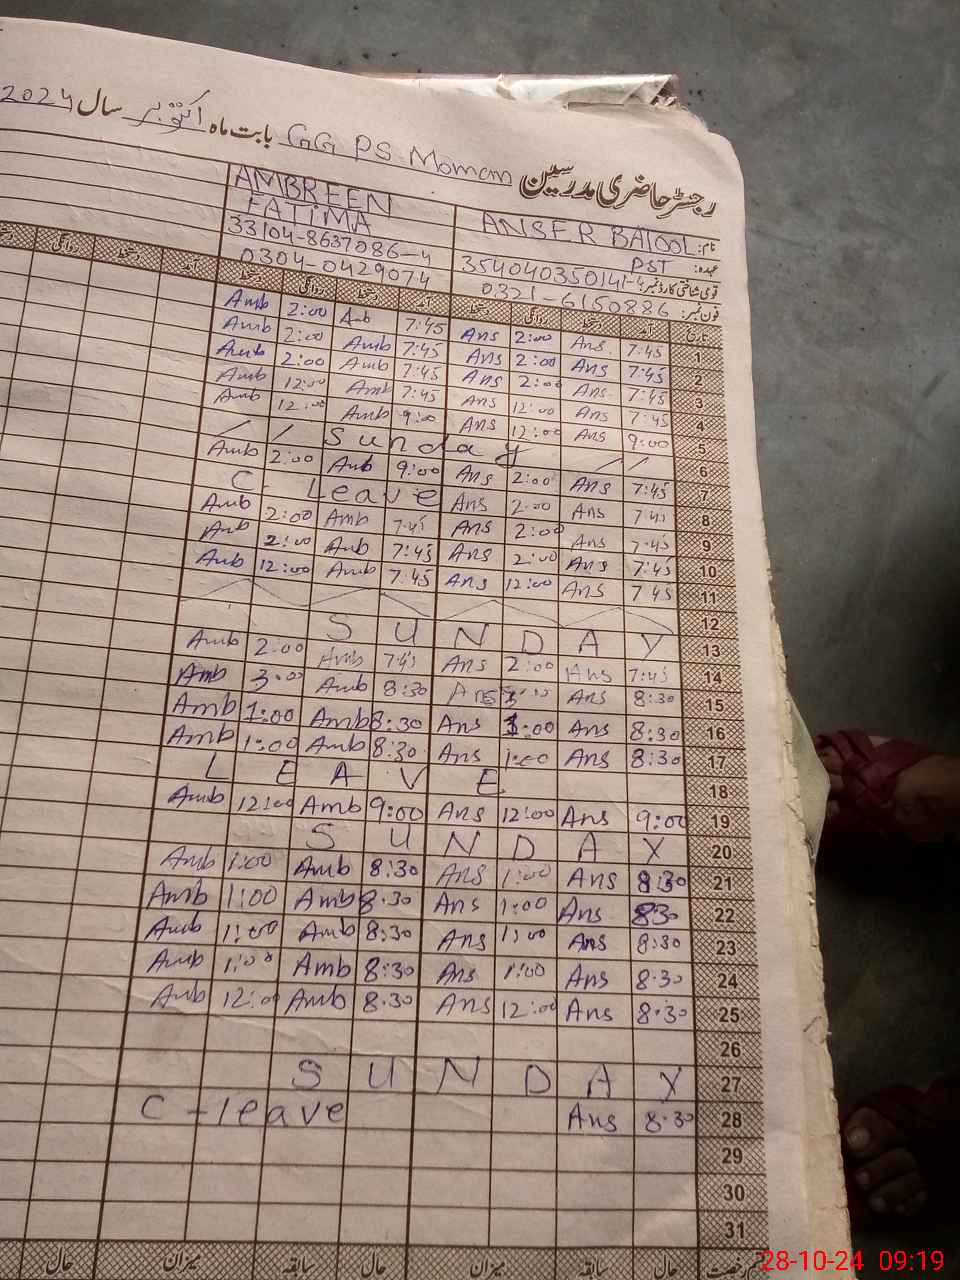 رجسٹر حاضری مدرسین GG PS Momam بابت ماہ اکتوبر سال 2024
AMBREEN FATIMA
33104-8637086-4
0304-0429074
نام: ANSER BATOOL
عہدہ: PST
قومی شناختی کارڈ نمبر: 354040350141-4
فون نمبر: 0321-6150886
دستخط روانگی دستخط آمد دستخط روانگی دستخط آمد تاریخ
Amb 2:00 Amb 7:45 Ans 2:00 Ans 7:45 1
Amb 2:00 Amb 7:45 Ans 2:00 Ans 7:45 2
Amb 2:00 Amb 7:45 Ans 2:00 Ans 7:45 3
Amb 12:00 Amb 7:45 Ans 12:00 Ans 7:45 4
Amb 12:00 Amb 9:00 Ans 12:00 Ans 9:00 5
Sunday 6
Amb 2:00 Amb 9:00 Ans 2:00 Ans 7:45 7
C. Leave Ans 2:00 Ans 7:45 8
Amb 2:00 Amb 7:45 Ans 2:00 Ans 7:45 9
Amb 2:00 Amb 7:45 Ans 2:00 Ans 7:45 10
Amb 12:00 Amb 7:45 Ans 12:00 Ans 7:45 11
12
SUNDAY 13
Amb 2:00 Amb 7:45 Ans 2:00 Ans 7:45 14
Amb 3:00 Amb 8:30 Ans Ans 8:30 15
Amb 1:00 Amb 8:30 Ans 1:00 Ans 8:30 16
Amb 1:00 Amb 8:30 Ans 1:00 Ans 8:30 17
LEAVE 18
Amb 12:00 Amb 9:00 Ans 12:00 Ans 9:00 19
SUNDAY 20
Amb 1:00 Amb 8:30 Ans 1:00 Ans 8:30 21
Amb 1:00 Amb 8:30 Ans 1:00 Ans 830 22
Amb 1:00 Amb 8:30 Ans 1:00 Ans 8:30 23
Amb 1:00 Amb 8:30 Ans 1:00 Ans 8:30 24
Amb 12:00 Amb 8:30 Ans 12:00 Ans 8:30 25
26
SUNDAY 27
C-leave Ans 8:30 28
29
30
31
رخصت حال سابقہ میزان حال سابقہ میزان حال
28-10-24 09:19